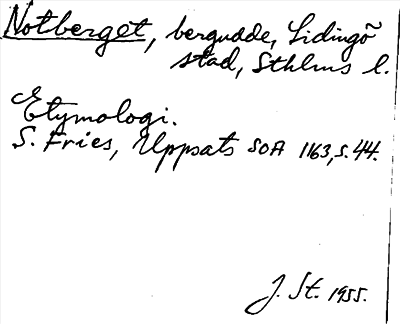 Notberget, bergudde, Lidingö
stad, Sthlms l.
Etymologi.
S. Fries, Uppsats SOA 1163, s. 44.
J. St. 1955.